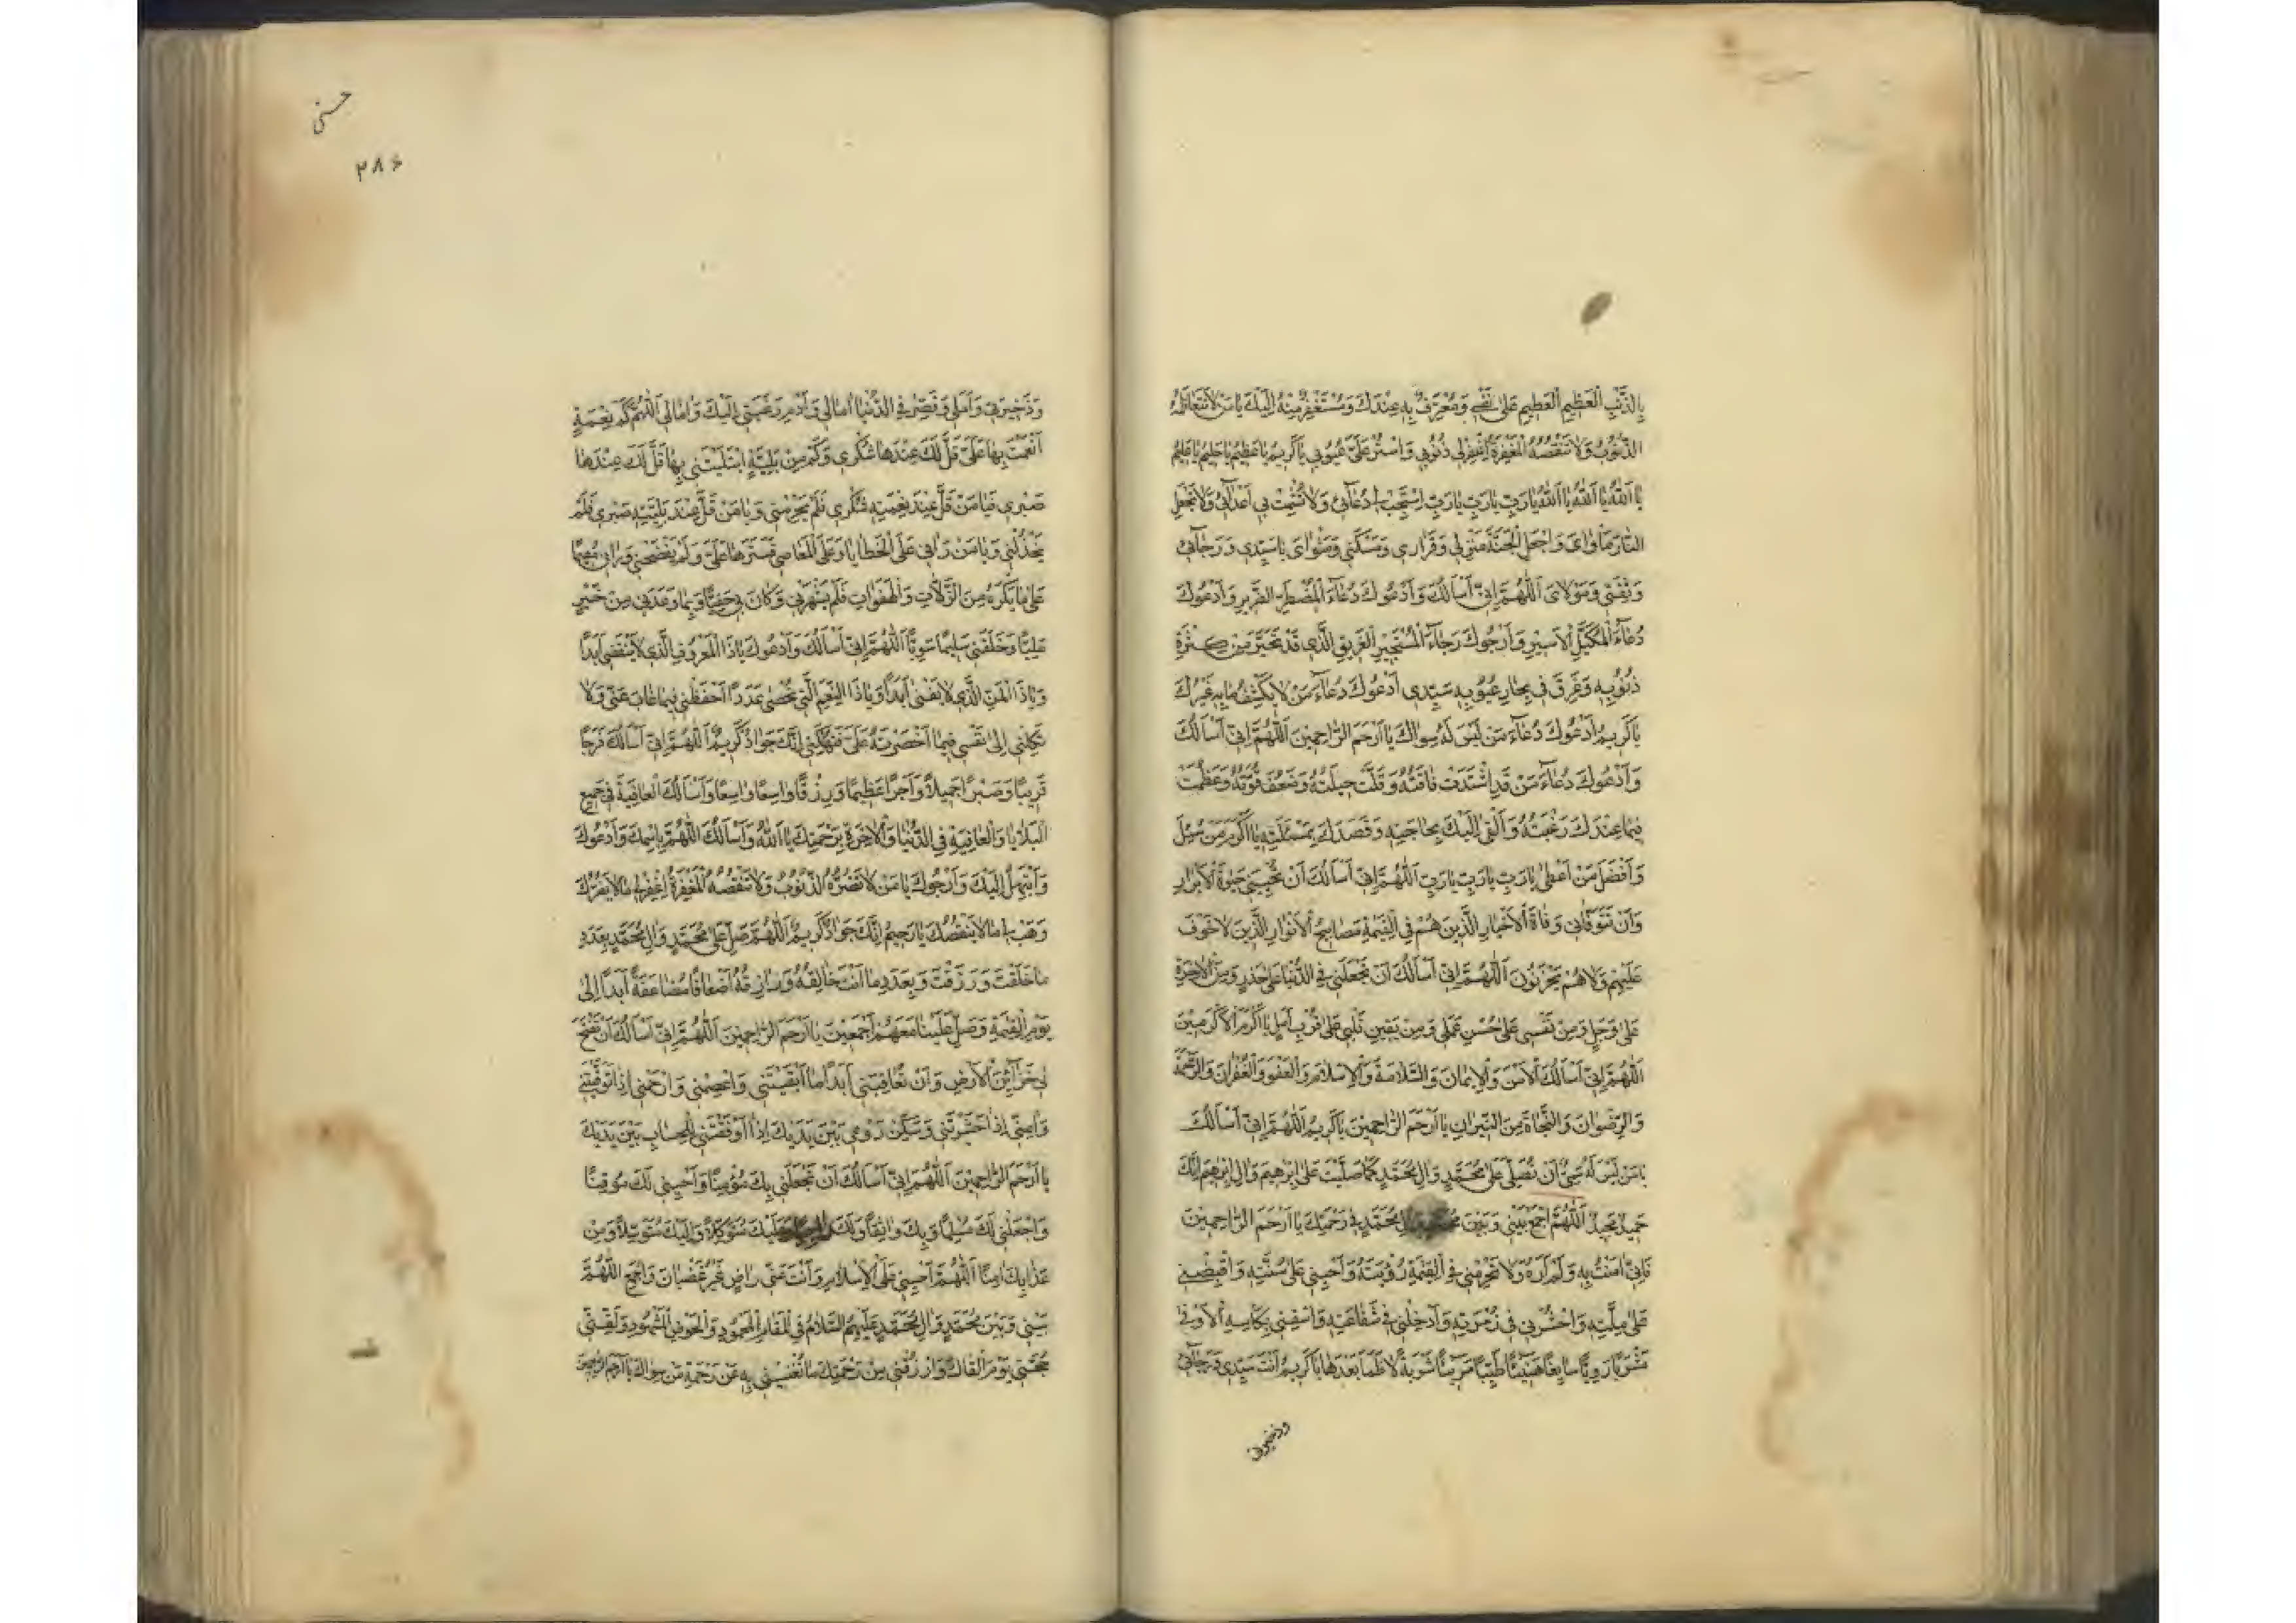 بِالذَّنْبِ الْعَظِيمِ الْعَظِيمِ عَلَى نَفْسِي وَمُعْتَرِفٌ بِهِ عِنْدَكَ وَمُسْتَغْفِرٌ مِنْهُ إِلَيْكَ يَا مَنْ لَا تَتَعَاظَمُهُ
الذُّنُوبُ وَلَا تَنْقُصُهُ الْمَغْفِرَةُ اغْفِرْ لِي ذُنُوبِي وَاسْتُرْ عَلَيَّ عُيُوبِي يَا كَرِيمُ يَا عَظِيمُ يَا حَلِيمُ يَا عَلِيمُ
يَا اَللهُ يَا اَللهُ يَا اَللهُ يَا رَبِّ يَا رَبِّ يَا رَبِّ اسْتَجِبْ دُعَائِي وَلَا تُشْمِتْ بِي أَعْدَائِي وَلَا تَجْعَلِ
النَّارَ مَأْوَايَ وَاجْعَلِ الْجَنَّةَ مَنْزِلِي وَقَرَارِي وَمَسْكَنِي وَمَثْوَايَ يَا سَيِّدِي وَرَجَائِي
وَثِقَتِي وَمَوْلَايَ اَللّٰهُمَّ إِنِّي أَسْأَلُكَ وَأَدْعُوكَ دُعَاءَ الْمُضْطَرِّ الضَّرِيرِ وَأَدْعُوكَ
دُعَاءَ الْمُكَبَّلِ الْأَسِيرِ وَأَرْجُوكَ رَجَاءَ الْمُسْتَجِيرِ الْغَرِيقِ الَّذِي قَدْ تَحَيَّرَ مِنْ كَثْرَةِ
ذُنُوبِهِ وَغَرِقَ فِي بِحَارِ عُيُوبِهِ سَيِّدِي أَدْعُوكَ دُعَاءَ مَنْ لَا يَكْشِفُ مَا بِهِ غَيْرُكَ
يَا كَرِيمُ أَدْعُوكَ دُعَاءَ مَنْ لَيْسَ لَهُ سِوَاكَ يَا أَرْحَمَ الرَّاحِمِينَ اَللّٰهُمَّ إِنِّي أَسْأَلُكَ
وَأَدْعُوكَ دُعَاءَ مَنْ قَدِ اشْتَدَّتْ فَاقَتُهُ وَقَلَّتْ حِيلَتُهُ وَضَعُفَ قُوَّتُهُ وَعَظُمَتْ
فِيمَا عِنْدَكَ رَغْبَتُهُ وَأَلْقَى إِلَيْكَ بِحَاجَتِهِ وَقَصَدَكَ بِمَسْئَلَتِهِ يَا أَكْرَمَ مَنْ سُئِلَ
وَأَفْضَلَ مَنْ أَعْطَى يَا رَبِّ يَا رَبِّ يَا رَبِّ اَللّٰهُمَّ إِنِّي أَسْأَلُكَ أَنْ تُحْيِيَنِي حَيٰوةَ الْأَبْرَارِ
وَأَنْ تَتَوَفَّانِي وَفَاةَ الْأَخْيَارِ الَّذِينَ هُمْ فِي الْقِيٰمَةِ مَصَابِيحُ الْأَنْوَارِ الَّذِينَ لَا خَوْفٌ
عَلَيْهِمْ وَلَا هُمْ يَحْزَنُونَ اَللّٰهُمَّ إِنِّي أَسْأَلُكَ أَنْ تَجْعَلَنِي فِي الدُّنْيَا عَلَى حَذَرٍ وَمِنَ الْآخِرَةِ
عَلَى وَجَلٍ وَمِنْ نَفْسِي عَلَى حُسْنِ عَمَلِي وَمِنْ يَقِينِ قَلْبِي عَلَى قُرْبِ أَمَلٍ يَا أَكْرَمَ الْأَكْرَمِينَ
اَللّٰهُمَّ إِنِّي أَسْأَلُكَ الْأَمْنَ وَالْإِيمَانَ وَالسَّلَامَةَ وَالْإِسْلَامَ وَالْعَفْوَ وَالْغُفْرَانَ وَالرَّحْمَةَ
وَالرِّضْوَانَ وَالنَّجَاةَ مِنَ النِّيرَانِ يَا أَرْحَمَ الرَّاحِمِينَ يَا كَرِيمُ اَللّٰهُمَّ إِنِّي أَسْأَلُكَ
يَا مَنْ لَيْسَ لَهُ سَمِيٌّ أَنْ تُصَلِّيَ عَلَى مُحَمَّدٍ وَآلِ مُحَمَّدٍ كَمَا صَلَّيْتَ عَلَى إِبْرٰهِيمَ وَآلِ إِبْرٰهِيمَ إِنَّكَ
حَمِيدٌ مَجِيدٌ اَللّٰهُمَّ اجْمَعْ بَيْنِي وَبَيْنَ مُحَمَّدٍ وَآلِ مُحَمَّدٍ فِي رَحْمَتِكَ يَا أَرْحَمَ الرَّاحِمِينَ
فَإِنِّي آمَنْتُ بِهِ وَلَمْ أَرَهُ وَلَا تَحْرِمْنِي فِي الْقِيٰمَةِ رُؤْيَتَهُ وَأَحْيِنِي عَلَى سُنَّتِهِ وَاقْبِضْنِي
عَلَى مِلَّتِهِ وَاحْشُرْنِي فِي زُمْرَتِهِ وَأَدْخِلْنِي فِي شَفَاعَتِهِ وَاسْقِنِي بِكَأْسِهِ الْأَوْفَى
مَشْرَبًا رَوِيًّا سَايِغًا هَنِيئًا طَيِّبًا مَرِيئًا شَرْبَةً لَا ظَمَأَ بَعْدَهَا يَا كَرِيمُ أَنْتَ سَيِّدِي وَرَجَائِي
وذخيرتي
حسنی
٣٨٤
وَذَخِيرَتِي وَأَمَلِي وَقَصِّرْ فِي الدُّنْيَا آمَالِي وَأَدِمْ رَغْبَتِي إِلَيْكَ وَآمَالِي اَللّٰهُمَّ كَمْ نِعْمَةٍ
أَنْعَمْتَ بِهَا عَلَيَّ قَلَّ لَكَ عِنْدَهَا شُكْرِي وَكَمْ مِنْ بَلِيَّةٍ ابْتَلَيْتَنِي بِهَا قَلَّ لَكَ عِنْدَهَا
صَبْرِي فَيَا مَنْ قَلَّ عِنْدَ نِعْمَتِهِ شُكْرِي فَلَمْ يَحْرِمْنِي وَيَا مَنْ قَلَّ عِنْدَ بَلِيَّتِهِ صَبْرِي فَلَمْ
يَخْذُلْنِي وَيَا مَنْ رَآنِي عَلَى الْخَطَايَا وَعَلَى الْمَعَاصِي فَسَتَرَهَا عَلَيَّ وَلَمْ يَفْضَحْنِي وَرَآنِي مُقِيمًا
عَلَى مَا يَكْرَهُ مِنَ الزَّلَّاتِ وَالْهَفَوَاتِ فَلَمْ يَنْهَرْنِي وَكَانَ بِي حَفِيًّا وَبِمَا وَعَدَنِي مِنْ خَيْرٍ
مَلِيًّا وَخَلَقَنِي سَلِيمًا سَوِيًّا اَللّٰهُمَّ إِنِّي أَسْأَلُكَ وَأَدْعُوكَ يَا ذَا الْمَعْرُوفِ الَّذِي لَا يَنْقَضِي أَبَدًا
وَيَا ذَا الْمَنِّ الَّذِي لَا يَفْنَى أَبَدًا وَيَا ذَا النِّعَمِ الَّتِي تُحْصَى عَدَدًا احْفَظْنِي فِيمَا غَابَ عَنِّي وَلَا
تَكِلْنِي إِلَى نَفْسِي فِيمَا أَحْضَرْتَهُ عَلَيَّ فَتُهْلِكَنِي إِنَّكَ جَوَادٌ كَرِيمٌ اَللّٰهُمَّ إِنِّي أَسْأَلُكَ فَرَجًا
قَرِيبًا وَصَبْرًا جَمِيلًا وَأَجْرًا عَظِيمًا وَرِزْقًا وَاسِعًا وَاسِعًا وَأَسْأَلُكَ الْعَافِيَةَ فِي جَمِيعِ
الْبَلَايَا وَالْعَافِيَةَ فِي الدُّنْيَا وَالْآخِرَةِ بِرَحْمَتِكَ يَا اَللهُ وَأَسْأَلُكَ اللّٰهُمَّ بِاسْمِكَ وَأَدْعُوكَ
وَأَبْتَهِلُ إِلَيْكَ وَأَرْجُوكَ يَا مَنْ لَا تَضُرُّهُ الذُّنُوبُ وَلَا تَنْقُصُهُ الْمَغْفِرَةُ اغْفِرْ لِي مَا لَا يَضُرُّكَ
وَهَبْ لِي مَا لَا يَنْقُصُكَ يَا رَحِيمُ إِنَّكَ جَوَادٌ كَرِيمٌ اَللّٰهُمَّ صَلِّ عَلَى مُحَمَّدٍ وَآلِ مُحَمَّدٍ بِعَدَدِ
مَا خَلَقْتَ وَرَزَقْتَ وَبِعَدَدِ مَا أَنْتَ خَالِقُهُ وَرَازِقُهُ أَضْعَافًا مُضَاعَفَةً أَبَدًا إِلَى
يَوْمِ الْقِيٰمَةِ وَصَلِّ عَلَيْنَا مَعَهُمْ أَجْمَعِينَ يَا أَرْحَمَ الرَّاحِمِينَ اَللّٰهُمَّ إِنِّي أَسْأَلُكَ أَنْ تَفْتَحَ
لِي خَزَائِنَ الْأَرْضِ وَأَنْ تُعَافِيَنِي أَبَدًا مَا أَبْقَيْتَنِي وَاعْصِمْنِي وَارْحَمْنِي إِذَا تَوَفَّيْتَنِي
وَآمِنِّي إِذَا حَشَرْتَنِي وَسَكِّنْ رَوْعِي بَيْنَ يَدَيْكَ إِذَا أَوْقَفْتَنِي لِلْحِسَابِ بَيْنَ يَدَيْكَ
يَا أَرْحَمَ الرَّاحِمِينَ اَللّٰهُمَّ إِنِّي أَسْأَلُكَ أَنْ تَجْعَلَنِي بِكَ مُؤْمِنًا وَأَحْيِنِي لَكَ مُوقِنًا
وَاجْعَلْنِي لَكَ مُسْلِمًا وَبِكَ وَاثِقًا وَلَكَ وَعَلَيْكَ مُتَوَكِّلًا وَإِلَيْكَ مُتَوَسِّلًا وَمِنْ
عَذَابِكَ آمِنًا اَللّٰهُمَّ أَحْيِنِي عَلَى الْإِسْلَامِ وَأَنْتَ عَنِّي رَاضٍ غَيْرُ غَضْبَانَ وَاجْمَعِ اللّٰهُمَّ
بَيْنِي وَبَيْنَ مُحَمَّدٍ وَآلِ مُحَمَّدٍ عَلَيْهِمُ السَّلَامُ فِي الْمَقَامِ الْمَحْمُودِ وَالْحَوْضِ الْمَشْهُودِ وَلَقِّنِّي
حُجَّتِي يَوْمَ أَلْقَاكَ وَارْزُقْنِي مِنْ رَحْمَتِكَ مَا تُغْنِينِي بِهِ عَنْ رَحْمَةِ مَنْ سِوَاكَ يَا أَرْحَمَ الرَّاحِمِينَ